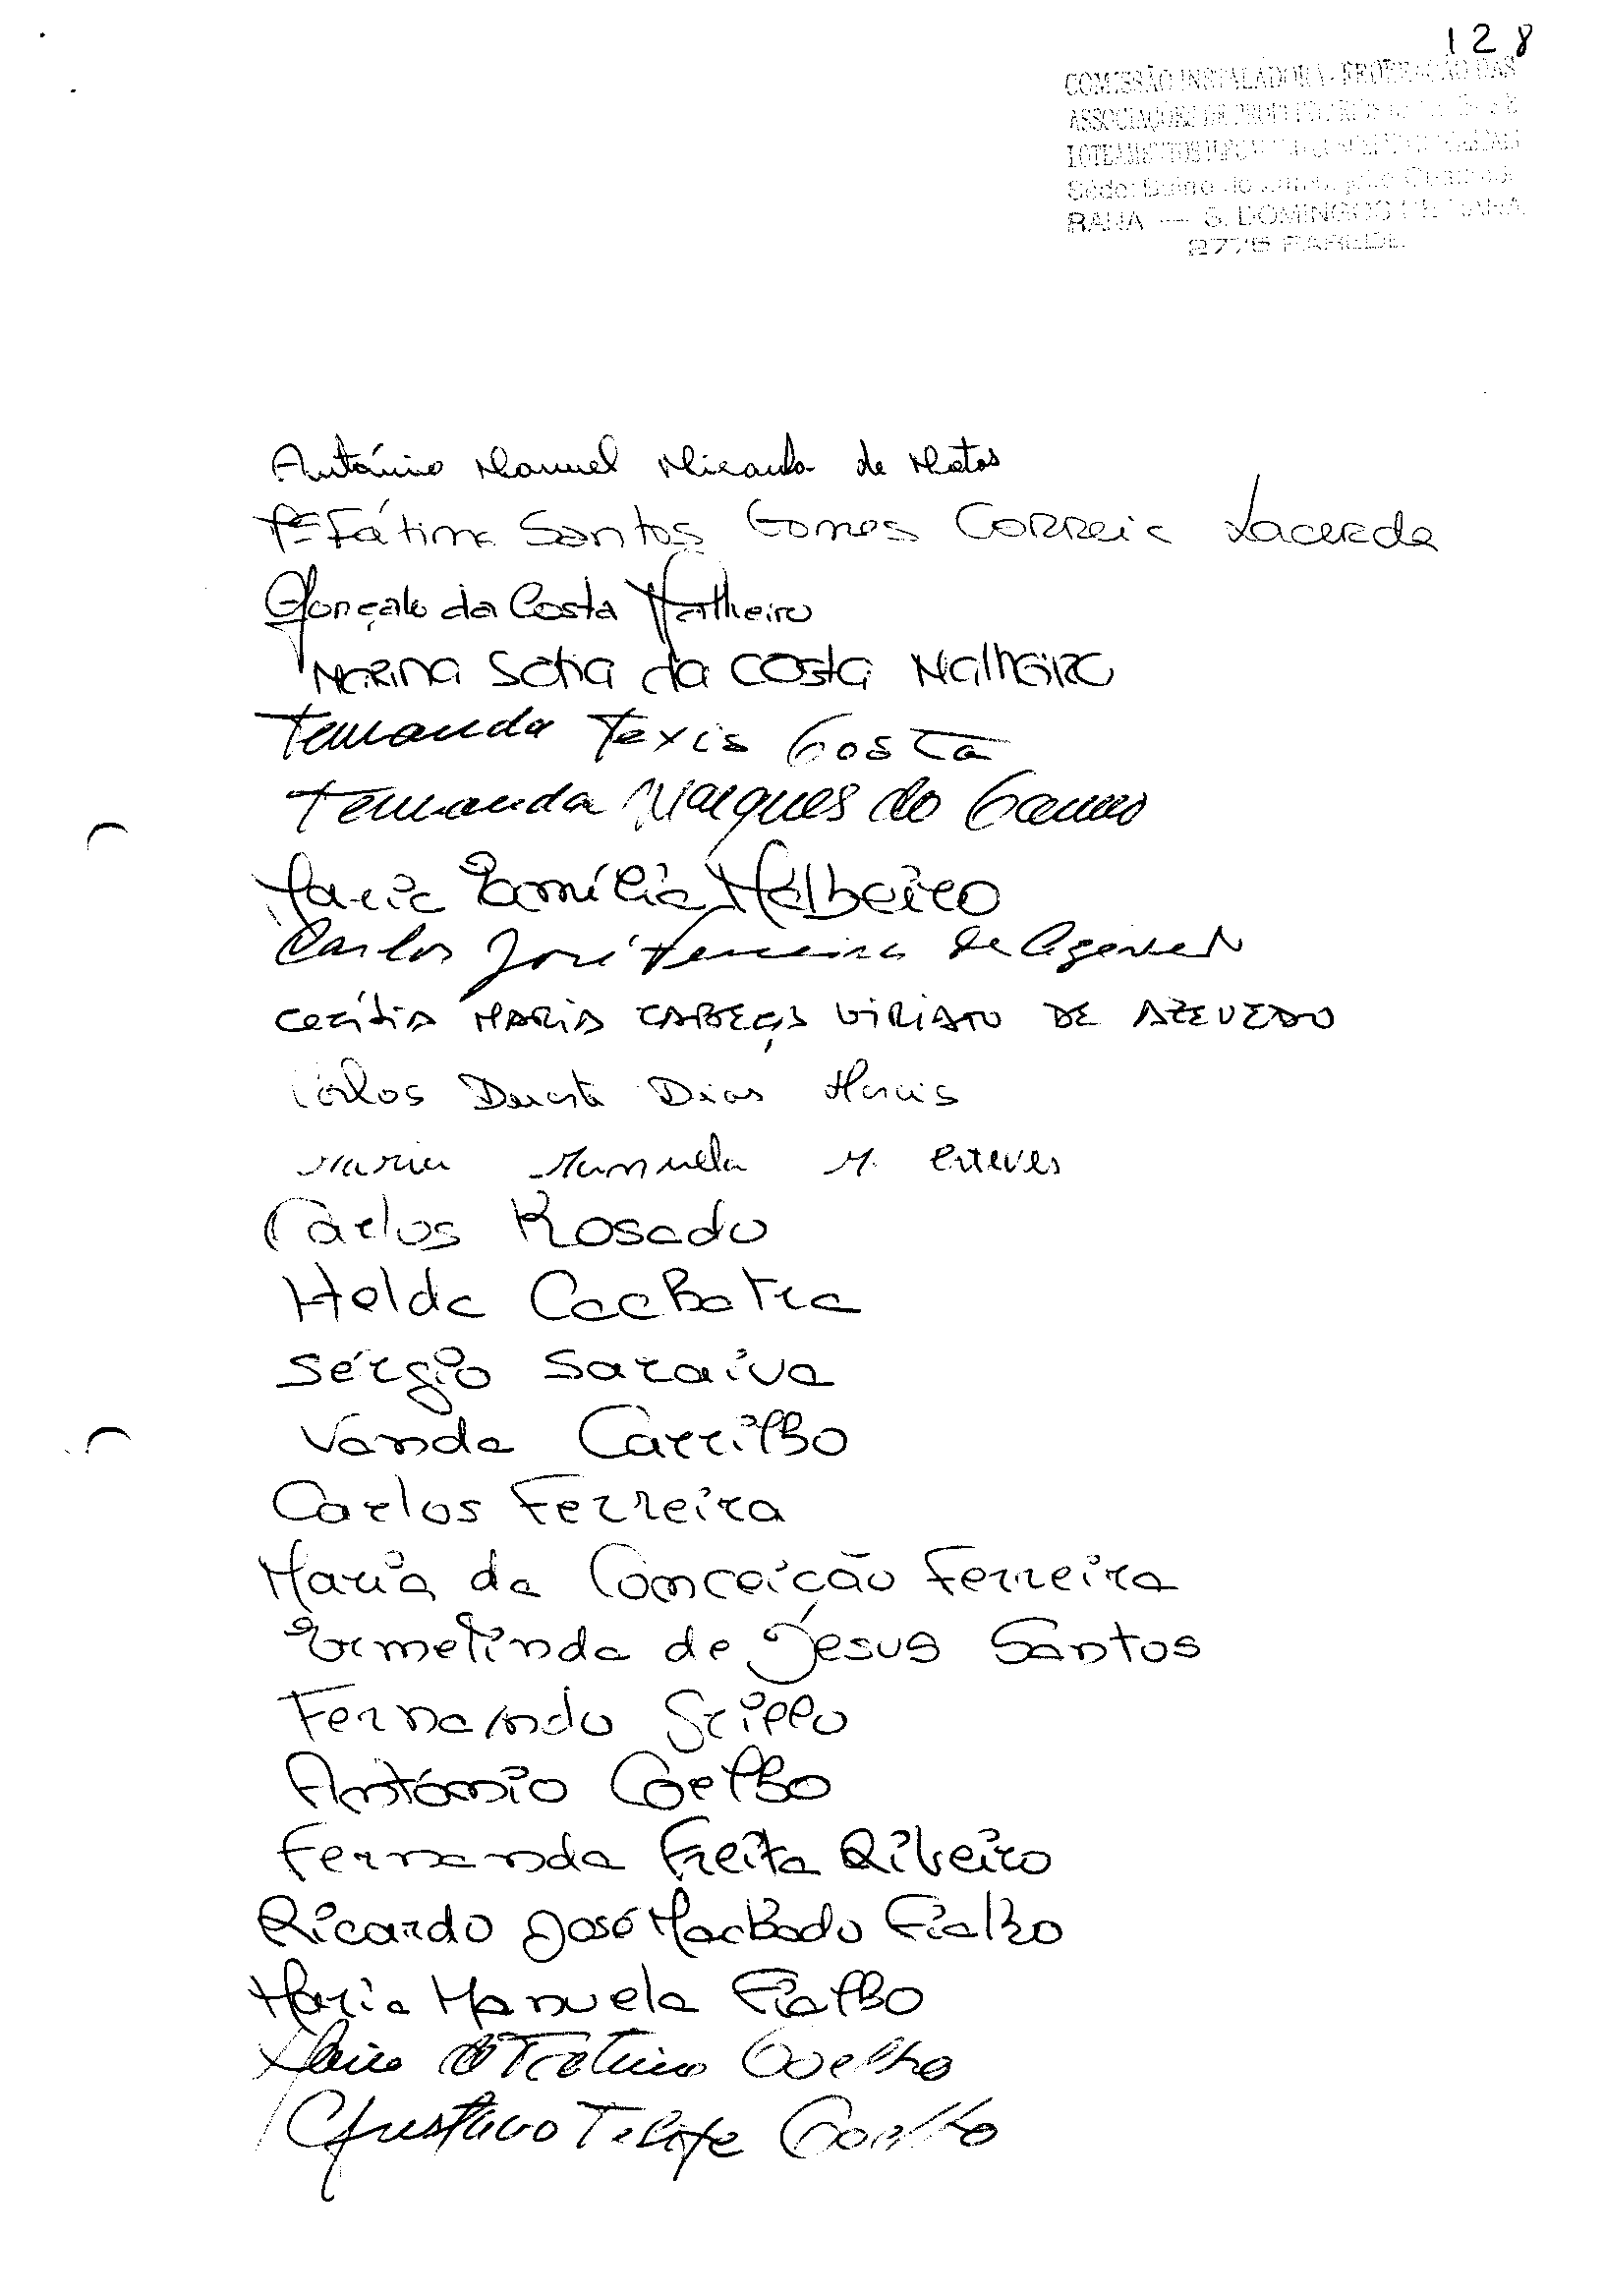 128
COMISSÃO INSTALADORA - FEDERAÇÃO DAS
ASSOCIAÇÕES DE
LOTEAMENTOS
Séde: Bairro
RANA — S. DOMINGOS DE RANA
2775 PAREDE
António Manuel Miranda de Matos
Mª Fátima Santos Gomes Correia Lacerda
Gonçalo da Costa Malheiro
Marina Sofia da Costa Malheiro
Fernanda Texis Costa
Fernanda Marques do Carmo
Maria Emília Malheiro
Carlos José Ferreira de Azevedo
Cecília MARIA CABEÇAS VIRIATO DE AZEVEDO
Carlos Duarte Dias
Maria Manuela M. Esteves
Carlos Rosado
Helda Cachatra
Sérgio Saraiva
Vanda Carrilho
Carlos Ferreira
Maria da Conceição Ferreira
Ermelinda de Jesus Santos
Fernando Grillo
António Coelho
Fernanda Freita Ribeiro
Ricardo José Machado Fialho
Maria Manuela Fialho
Coelho
Gustavo Felipe Coelho